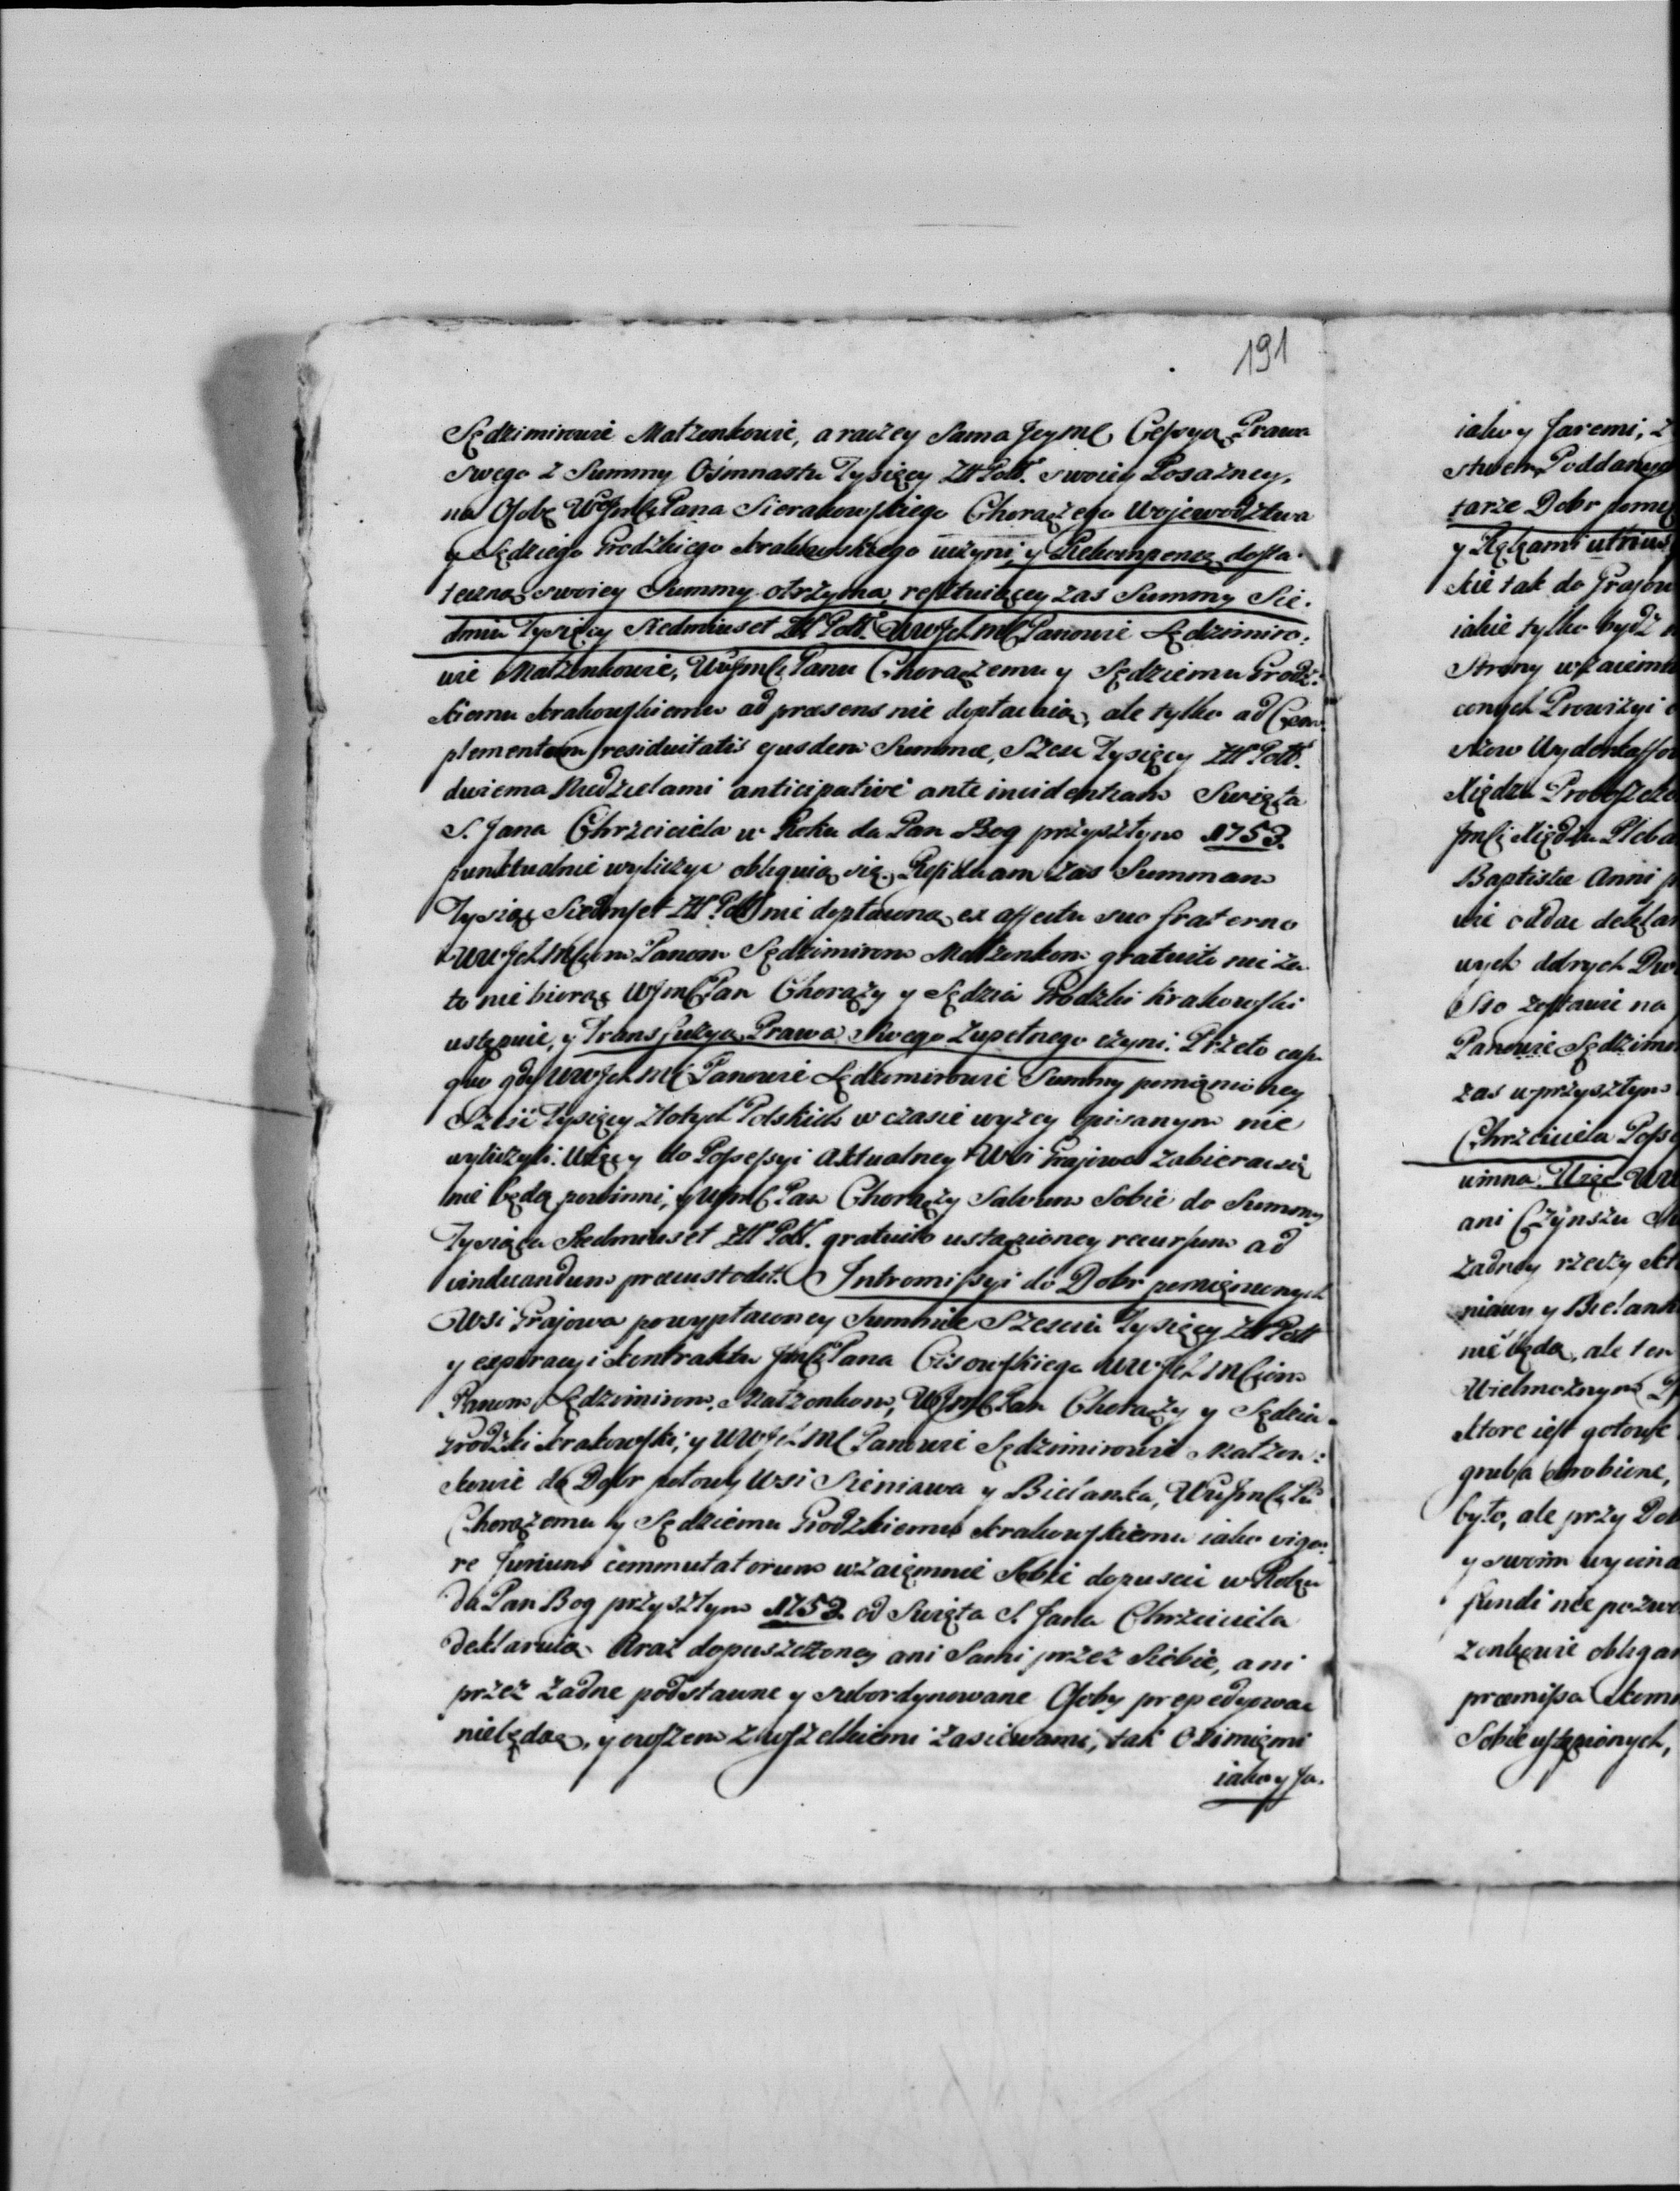 191
Sędzimirowie Małżonkowie, a raczey sama Jeymć Cessyą Prawa
swego z Summy Ośmnastu Tysięcy Złł Poll. swoiey Posażney,
na Osobę WJmci Pana Sierakowskiego Chorążego Wojewodztwa
y Sędziego Grodzkiego Krakowskiego uczyni, y Rekompensę dosta-
teczną swoiey Summy otrzyma, restuiącey zas Summy Sie-
dmiu Tysięcy Siedmiuset Złł Poll. WWJchmć Panowie Sędzimiro:
wie Małżonkowie, WJmci Panu Chorążemu y Sędziemu Grodz:
kiemu Krakowskiemu ad præsens nie dopłacaią, ale tylko ad Com-
plementum residuitatis ejusdem Summæ, Sześć Tysięcy Złł Poll.
dwiema Niedzielami anticipative ante incidentiam Swięta
S. Jana Chrzciciela w Roku da Pan Bog przyszłym 1753.
punktualnie wyliczyć obliguią się. Residuam zas Summam
Tysiąc Siedmset Złł Poll nie dopłacną ex affectu suo fraterno
WWJchmciom Panom Sędzimirom Małżonkom gratuito nic za
to nie biorąc WJmć Pan Chorąży y Sędzia Grodzki Krakowski
ustępuie, y Transfuzyą Prawa Swego zupełnego czyni. Przeto casu
quo gdy WWJchmć Panowie Sędzimirowie Summy pomięnioney
Sześć Tysięcy Złotych Polskich w czasie wyżey opisanym nie
wyliczyli. Więcy do Possessyi Aktualney Wsi Grajowa zabierać się
nie będą powinni, y WJmć Pan Chorąży Salvum Sobie do Summy
Tysiąca Siedmiuset Złł Poll. gratuito ustąpioney recursum ad
vindicandum præcustodit. Intromissyi do Dobr pomięnionych
Wsi Grajowa po wypłaconey Summie Szesciu Tysięcy Złł Poll
y expiracyi kontraktu Jmci Pana Cisowskiego WWJchmciom
Panom Sędzimirom, Małżonkom, WJmć Pan Chorąży y Sędzia
Grodzki Krakowski, y WWJchmć Panowie Sędzimirowie Małżon:
kowie do Dobr połowy Wsi Sieniawa y Bielanka, WJmci Pu
Chorążemu y Sędziemu Grodzkiemu Krakowskiemu iako vigo-
re Jurium commutatorum wzaięmnie Sobie dopuscić w Roku
da Pan Bog przyszłym 1753. od Swięta S. Jana Chrzciciela
deklaruią. Raz dopuszczoney ani Sami przez Siebie, ani
przez żadne podstawne y subordynowane Osoby prepedyować
niebędą, y owszem z wszelkiemi zasiewami, tak Ozimięmi
iako y Ja.
iako y Jaremi, z
stwem, Poddanym
tarze Dobr pomię
utrius
kie tak do Grajow
iakie tylko bydź
Strony wzaiemn
conych Prowizyi
Xiędzu Proboszczo
Jmci Xiędzu Pleba
Baptistæ Anni
wie oddać deklar
wych dobrych
Sto zostawić na
Panowie Sędzimi
zas w przyszłym
Chrzciciela Poss
winna. Więc WW
ani Czynszu
żadney rzeczy
niawy y Bielank
nie będą, ale ten
Wielmożnym
Ktore iest gotowe
gruba
było, ale przy Dob
y swoim wycina
fundi nie pozwo
żonkowie obligan
præmissa
Sobie ustąpionych,